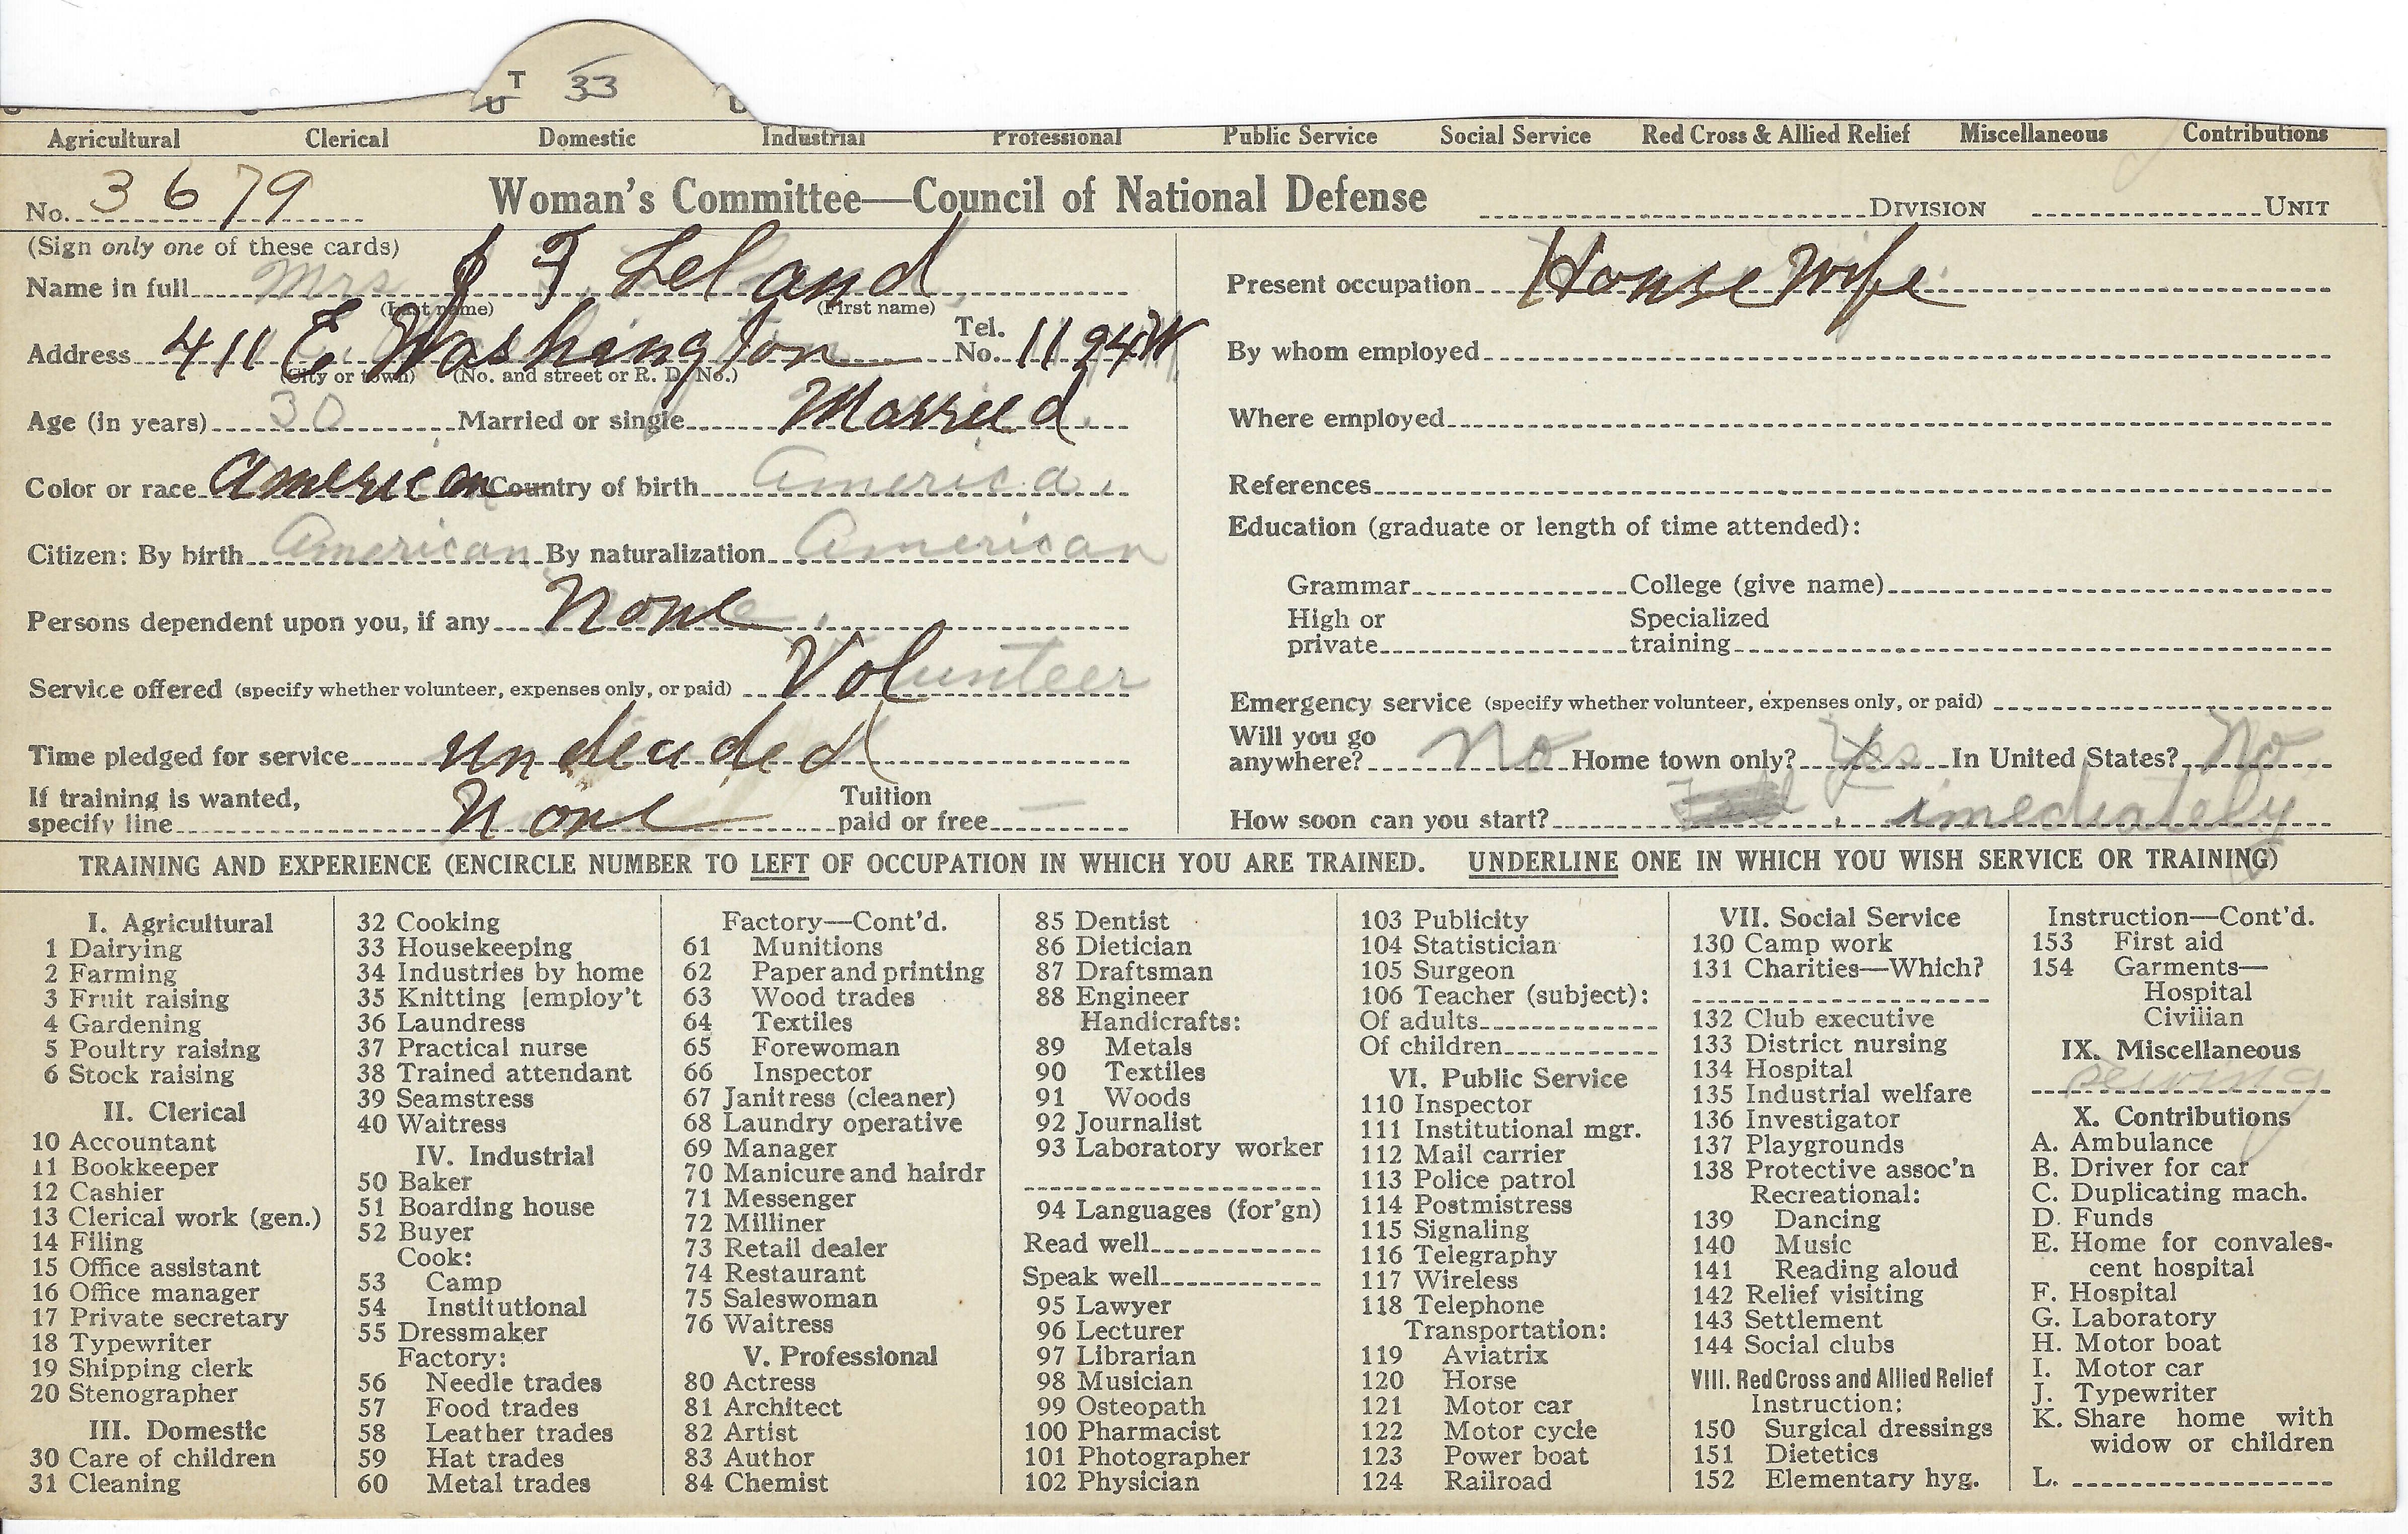 T 33
U
Agricultural Clerical Domestic Industrial Professional Public Service Social Service Red Cross & Allied Relief Miscellaneous Contributions
No. 3679 Woman's Committee—Council of National Defense DIVISION UNIT
(Sign only one of these cards)
Name in full Mrs J T Leland
(Last name) (First name)
Address 411 E Washington Tel. No. 1194W
(City or town) (No. and street or R. D. No.)
Age (in years) 30 Married or single Married
Color or race American Country of birth America.
Citizen: By birth American By naturalization American
Persons dependent upon you, if any None
Service offered (specify whether volunteer, expenses only, or paid) Volunteer
Time pledged for service undecided
If training is wanted, specify line None Tuition paid or free —
Present occupation House Wife
By whom employed
Where employed
References
Education (graduate or length of time attended):
Grammar College (give name)
High or private Specialized training
Emergency service (specify whether volunteer, expenses only, or paid)
Will you go anywhere? No Home town only? Yes In United States? No
How soon can you start? imediately
TRAINING AND EXPERIENCE (ENCIRCLE NUMBER TO LEFT OF OCCUPATION IN WHICH YOU ARE TRAINED. UNDERLINE ONE IN WHICH YOU WISH SERVICE OR TRAINING)
I. Agricultural
1 Dairying
2 Farming
3 Fruit raising
4 Gardening
5 Poultry raising
6 Stock raising
II. Clerical
10 Accountant
11 Bookkeeper
12 Cashier
13 Clerical work (gen.)
14 Filing
15 Office assistant
16 Office manager
17 Private secretary
18 Typewriter
19 Shipping clerk
20 Stenographer
III. Domestic
30 Care of children
31 Cleaning
32 Cooking
33 Housekeeping
34 Industries by home
35 Knitting [employ't
36 Laundress
37 Practical nurse
38 Trained attendant
39 Seamstress
40 Waitress
IV. Industrial
50 Baker
51 Boarding house
52 Buyer
Cook:
53 Camp
54 Institutional
55 Dressmaker
Factory:
56 Needle trades
57 Food trades
58 Leather trades
59 Hat trades
60 Metal trades
Factory—Cont'd.
61 Munitions
62 Paper and printing
63 Wood trades
64 Textiles
65 Forewoman
66 Inspector
67 Janitress (cleaner)
68 Laundry operative
69 Manager
70 Manicure and hairdr
71 Messenger
72 Milliner
73 Retail dealer
74 Restaurant
75 Saleswoman
76 Waitress
V. Professional
80 Actress
81 Architect
82 Artist
83 Author
84 Chemist
85 Dentist
86 Dietician
87 Draftsman
88 Engineer
Handicrafts:
89 Metals
90 Textiles
91 Woods
92 Journalist
93 Laboratory worker
94 Languages (for'gn)
Read well
Speak well
95 Lawyer
96 Lecturer
97 Librarian
98 Musician
99 Osteopath
100 Pharmacist
101 Photographer
102 Physician
103 Publicity
104 Statistician
105 Surgeon
106 Teacher (subject):
Of adults
Of children
VI. Public Service
110 Inspector
111 Institutional mgr.
112 Mail carrier
113 Police patrol
114 Postmistress
115 Signaling
116 Telegraphy
117 Wireless
118 Telephone
Transportation:
119 Aviatrix
120 Horse
121 Motor car
122 Motor cycle
123 Power boat
124 Railroad
VII. Social Service
130 Camp work
131 Charities—Which?
132 Club executive
133 District nursing
134 Hospital
135 Industrial welfare
136 Investigator
137 Playgrounds
138 Protective assoc'n
Recreational:
139 Dancing
140 Music
141 Reading aloud
142 Relief visiting
143 Settlement
144 Social clubs
VIII. Red Cross and Allied Relief
Instruction:
150 Surgical dressings
151 Dietetics
152 Elementary hyg.
Instruction—Cont'd.
153 First aid
154 Garments—
Hospital
Civilian
IX. Miscellaneous
Sewing
X. Contributions
A. Ambulance
B. Driver for car
C. Duplicating mach.
D. Funds
E. Home for convales-
cent hospital
F. Hospital
G. Laboratory
H. Motor boat
I. Motor car
J. Typewriter
K. Share home with
widow or children
L.